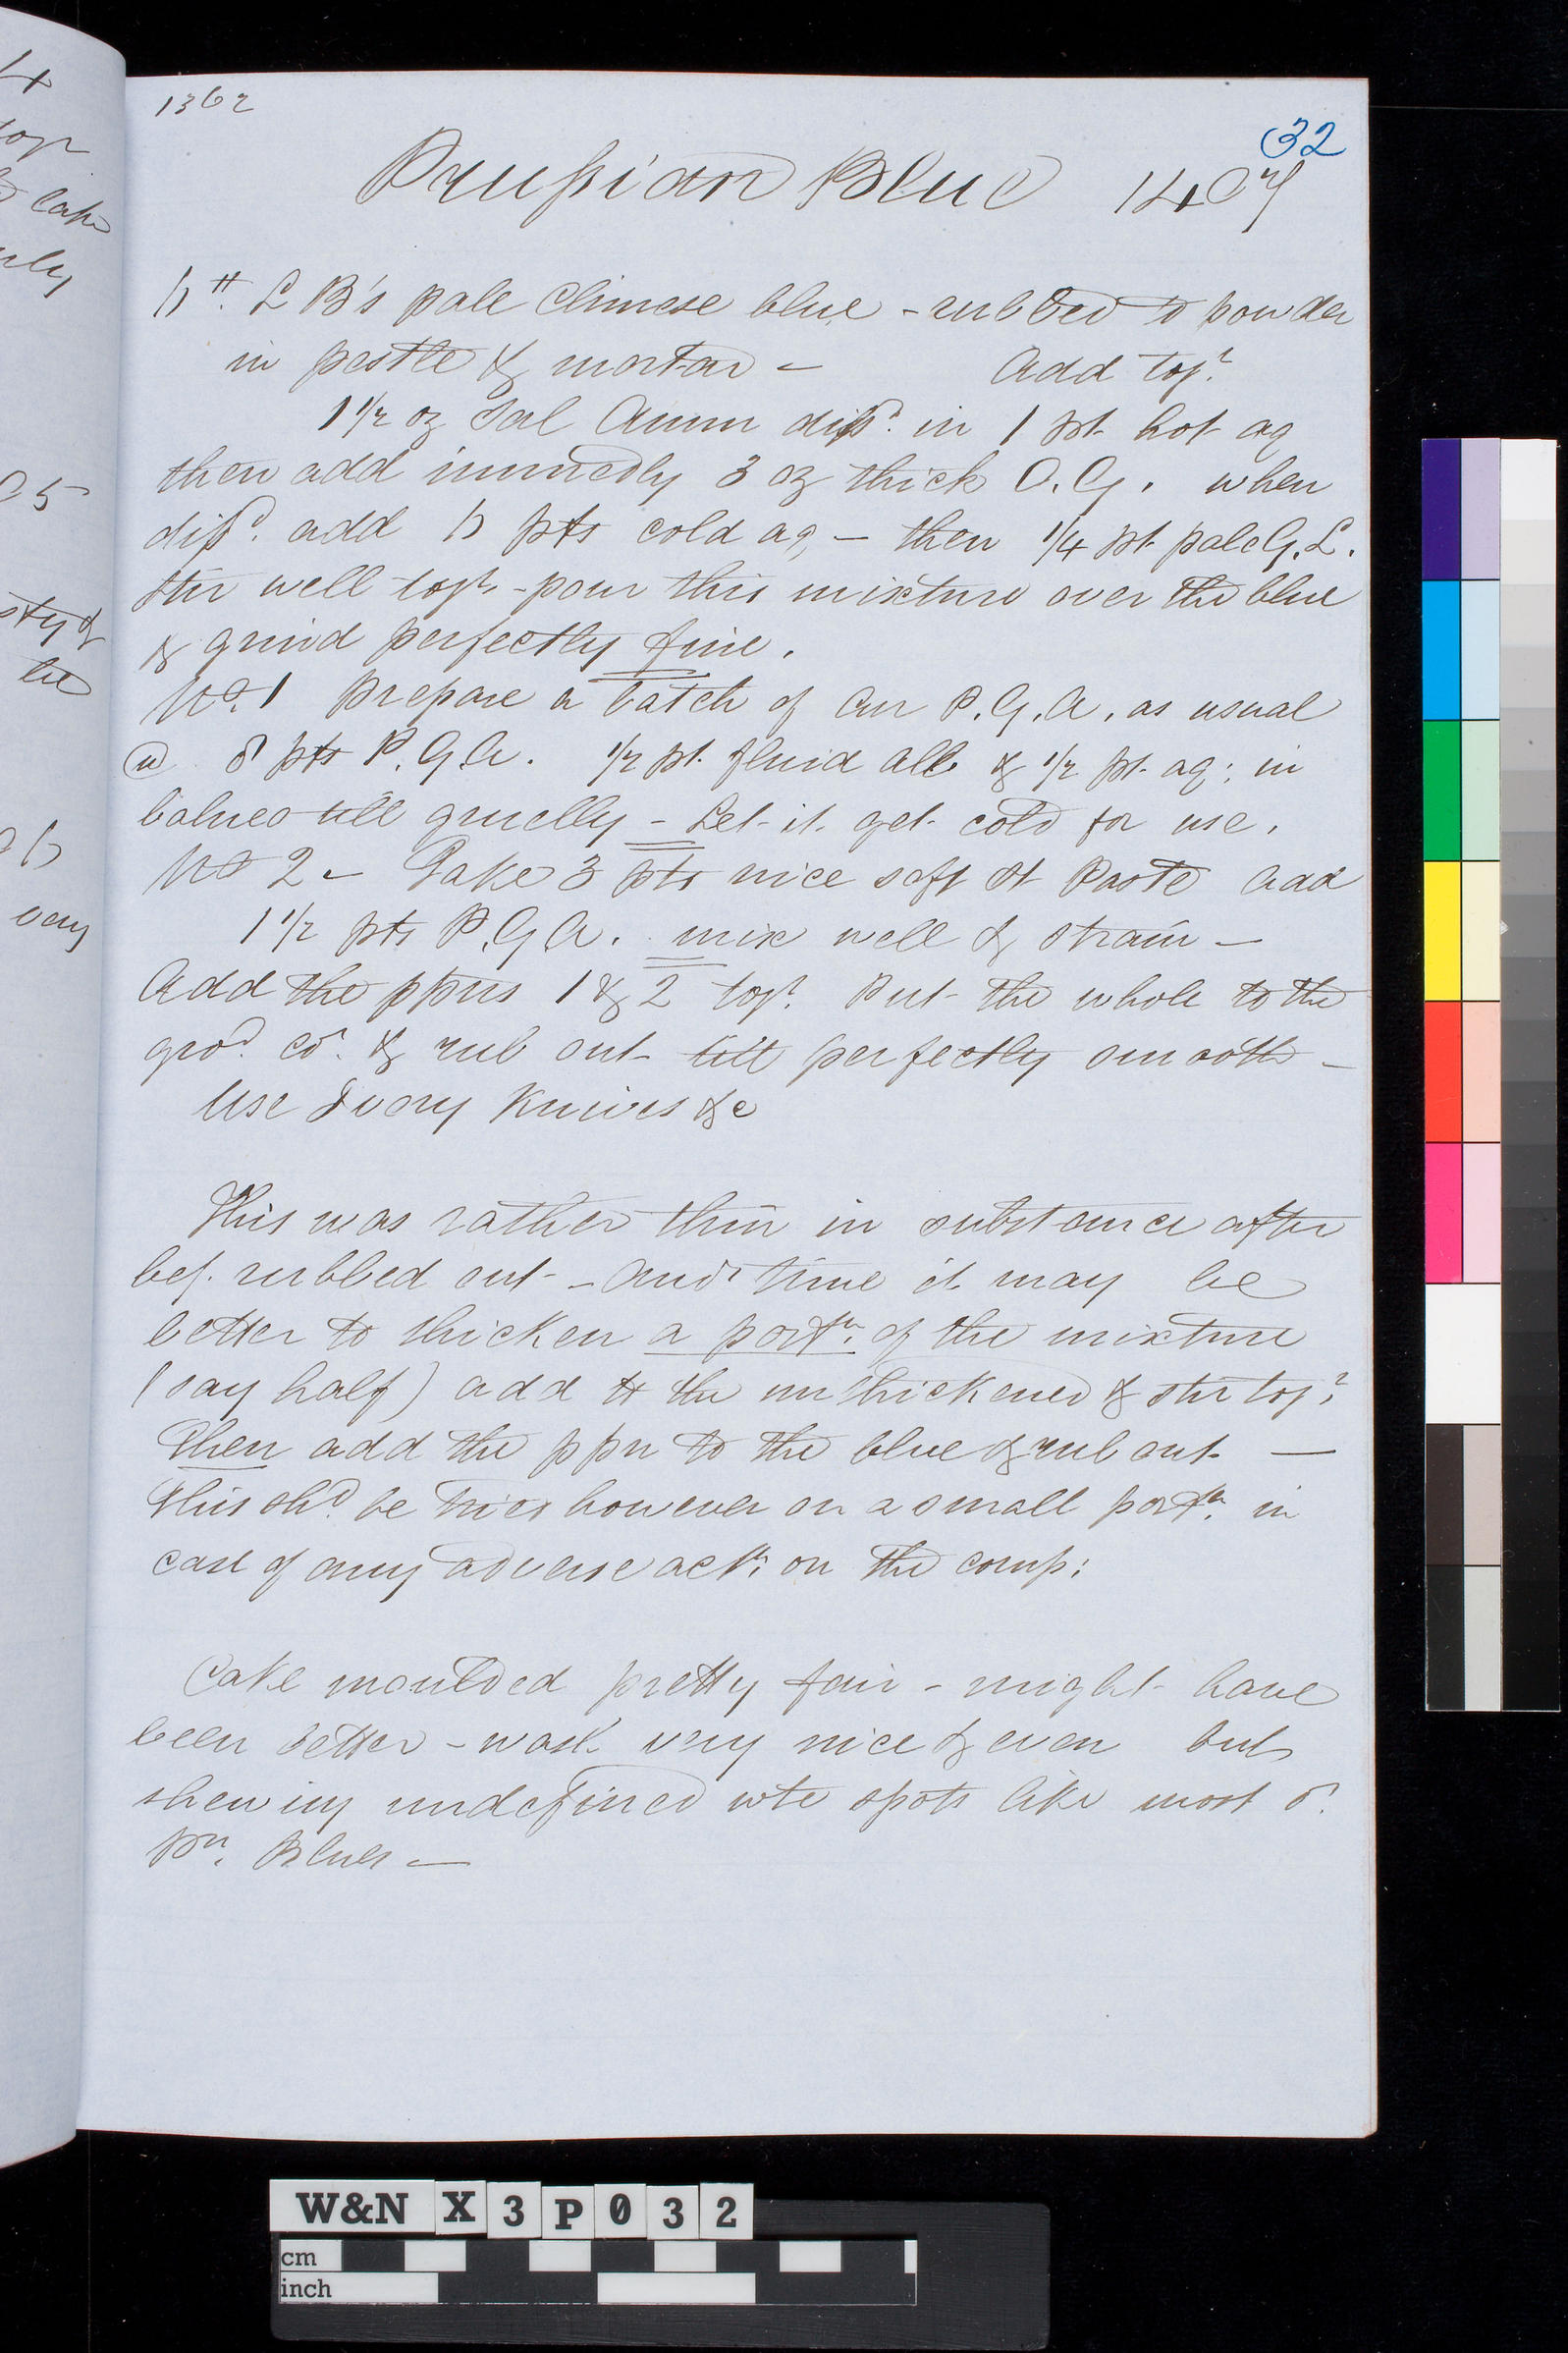 1362
32
Prussian Blue 1407
6 lb. L B's pale Chinese blue - rubbed to powder
in pestle & mortar - Add togr.
1 1/2 oz Sal Amm dissd. in 1 pt. hot aq
then add immedly 3 oz thick O.G. when
dissd. add 6 pts cold aq, - then 1/4 pt. pale G.L.
Stir well togr. - pour this mixture over the blue
& grind perfectly fine.
No. 1 Prepare a batch of our P.G.A. as usual
8 pts P.G.A. 1/2 pt. fluid alb & 1/2 pt. aq: in
balneo till gruelly - Let it get cold for use.
No 2 - Take 3 pts nice soft St Paste add
1 1/2 pts P.G.A. mix well & strain -
Add the ppns 1 & 2 togr. Put the whole to the
grod. co. & rub out till perfectly smooth -
Use Ivory Knives &c
This was rather thin in substance after
beg. rubbed out - Anor time it may be
better to thicken a portn. of the mixture
(say half) add to the unthickened & stir togr.
Then add the ppn to the blue & rub out -
This shd. be tried however on a small portn. in
case of any adverse actn. on the comp:
Cake moulded pretty fair - might have
been better - wash very nice & even but
shewing undefined wte spots like most
Pn. Blues -
4
cake
05
be
06
very
W&N X3P032
cm
inch